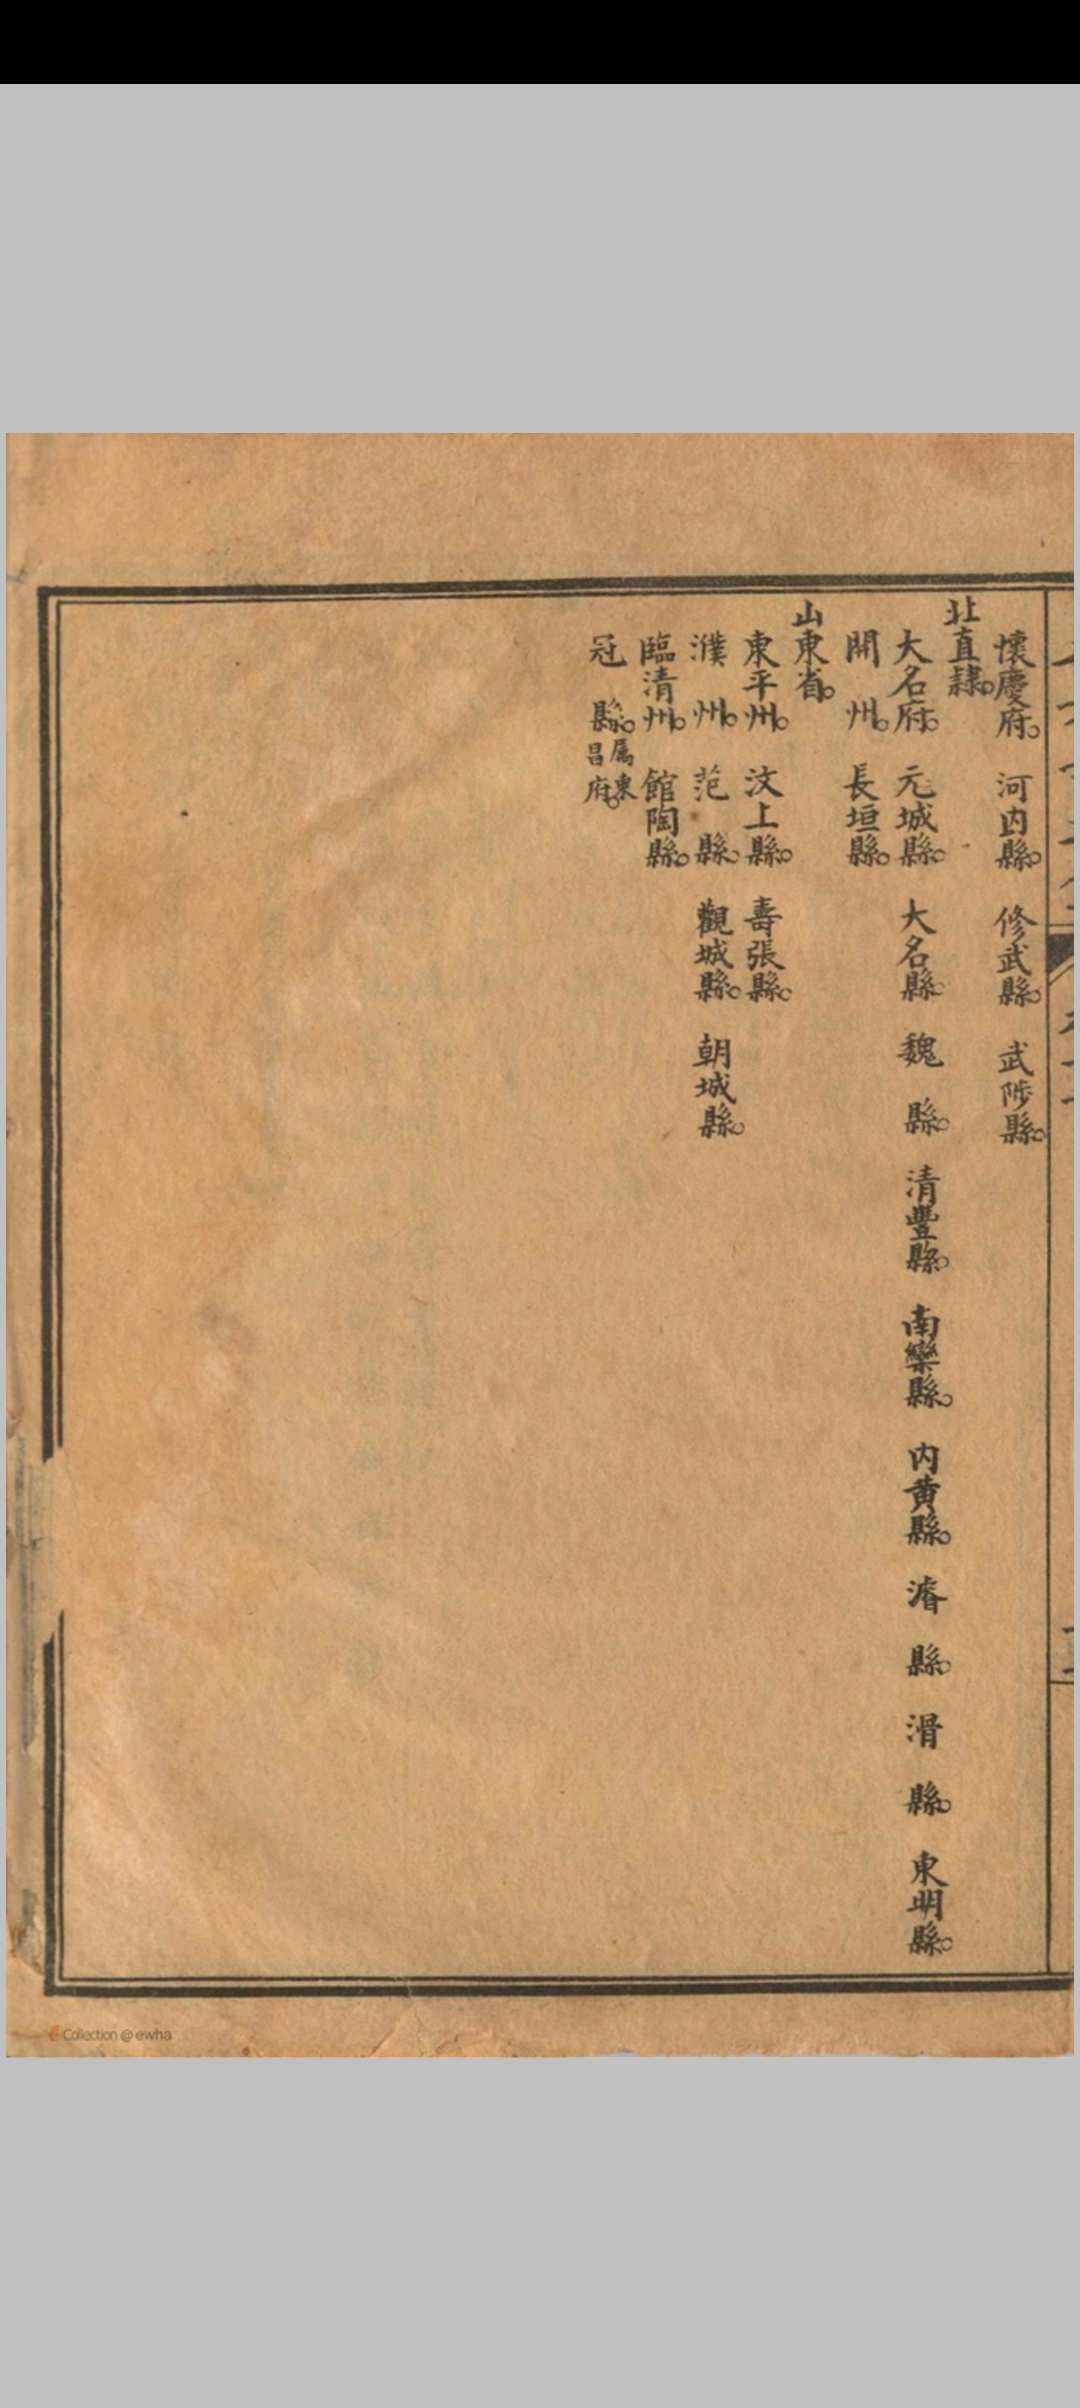 懷慶府。 河內縣。 修武縣。 武陟縣。
北直隸。
大名府。 元城縣。 大名縣。 魏 縣。 清豐縣。 南樂縣。 內黃縣。 濬 縣。 滑 縣。 東明縣。
開 州。 長垣縣。
山東省。
東平州。 汶上縣。 壽張縣。
濮 州。 范 縣。 觀城縣。 朝城縣。
臨清州。 館陶縣。
冠 縣。屬東昌府。
Collection @ ewha